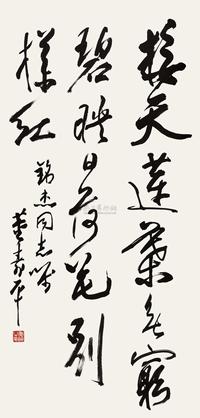 接天莲叶无穷
碧映日荷花别
样红
锦杰同志嘱
董寿平